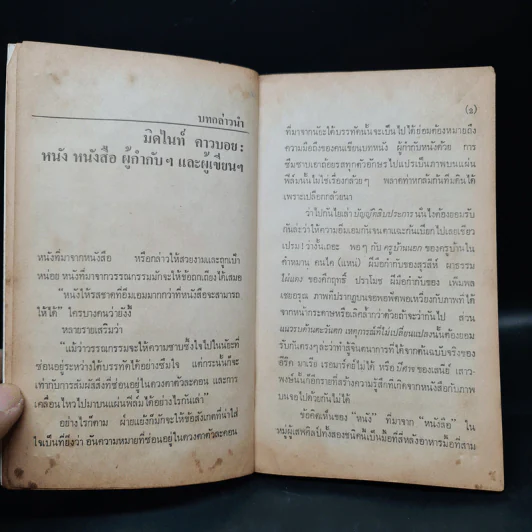 บทกล่าวนำ
มิดไนท์ คาวบอย :
หนัง หนังสือ ผู้กำกับฯ และผู้เขียนฯ
หนังที่มาจากหนังสือ หรือกล่าวให้สวยงามและถูกเป้า
หน่อย หนังที่มาจากวรรณกรรมมักจะให้ข้อถกเถียงได้เสมอ
“หนังให้รสชาติที่อิ่มเอมมากกว่าที่หนังสือจะสามารถ
ให้ได้” ใครบางคนว่ายังงี้
หลายรายเสริมว่า
“แม้ว่าวรรณกรรมจะให้ความซาบซึ้งใจไปในนัยะที่
ซ่อนอยู่ระหว่างใต้บรรทัดได้อย่างซึมใจ แต่กระนั้นก็จะ
เท่ากับการสัมผัสสิ่งที่ซ่อนอยู่ในดวงตาตัวละคอน และการ
เคลื่อนไหวไปมาบนแผ่นฟิล์มได้อย่างไรกันเล่า”
อย่างไรก็ตาม ฝ่ายแย้งก็มักจะให้ข้อสังเกตที่น่าใส่
ใจเป็นที่ยิ่งว่า อันความหมายที่ซ่อนอยู่ในดวงตาตัวละคอน
(๑)
ที่มาจากนัยะใต้บรรทัดนั้นจะเป็นไปได้ย่อมต้องหมายถึง
ความมือถึงของคนเขียนบทหนัง ผู้กำกับหนังด้วย การ
ซึมซาบเอาถ้อยรสทุกตัวอักษรไปแปรเป็นภาพบนแผ่น
ฟิล์มนั้นไม่ใช่เรื่องกล้วยๆ พลาดท่าหกล้มก้นทิ่มดินได้
เพราะเปลือกกล้วยนา
ว่าไปกันใยเล่า บัญญัติสิบประการ นั่นไงต้องยอมรับ
กันล่ะว่าให้ความอิ่มเอมกันจนตาแฉะกันเปียกไปเลยเชียว
เปรม! ว่างั้นเถอะ พอๆ กับ ครูบ้านนอก ของครูบ้านใน
คำหมาน คนไค (แหน่) ฝีมือกำกับของสุรสีห์ ผาธรรม
ไผ่แดง ของคึกฤทธิ์ ปราโมช ฝีมือกำกับของ เพิ่มพล
เชยอรุณ ภาพที่ปรากฏบนจอพอฟัดพอเหวี่ยงกับภาพที่ได้
จากหน้ากระดาษหรือเคล็กล้ำกว่าด้วยถ้าจะว่ากันไป ส่วน
แนวรบด้านตะวันตก เหตุการณ์ที่ไม่เปลี่ยนแปลง นั้นต้องยอม
รับกันตรงๆล่ะว่าทำสู้จินตนาการที่ได้จากต้นฉบับจริงของ
อีริค มาเรีย เรอมาร์คยังไม่ได้ หรือ
พงษ์นั่นก็อีกรายที่สร้างความรู้สึกที่เกิดจากหนังสือกับภาพ
บนจอไปด้วยกันไม่ได้
ข้อคิดเห็นของ “หนัง” ที่มาจาก “หนังสือ” ใน
หมู่ผู้เสพศิลป์ทั้งสองชนิดนี้เป็นมื้อที่สี่หลังอาหารมื้อที่สาม